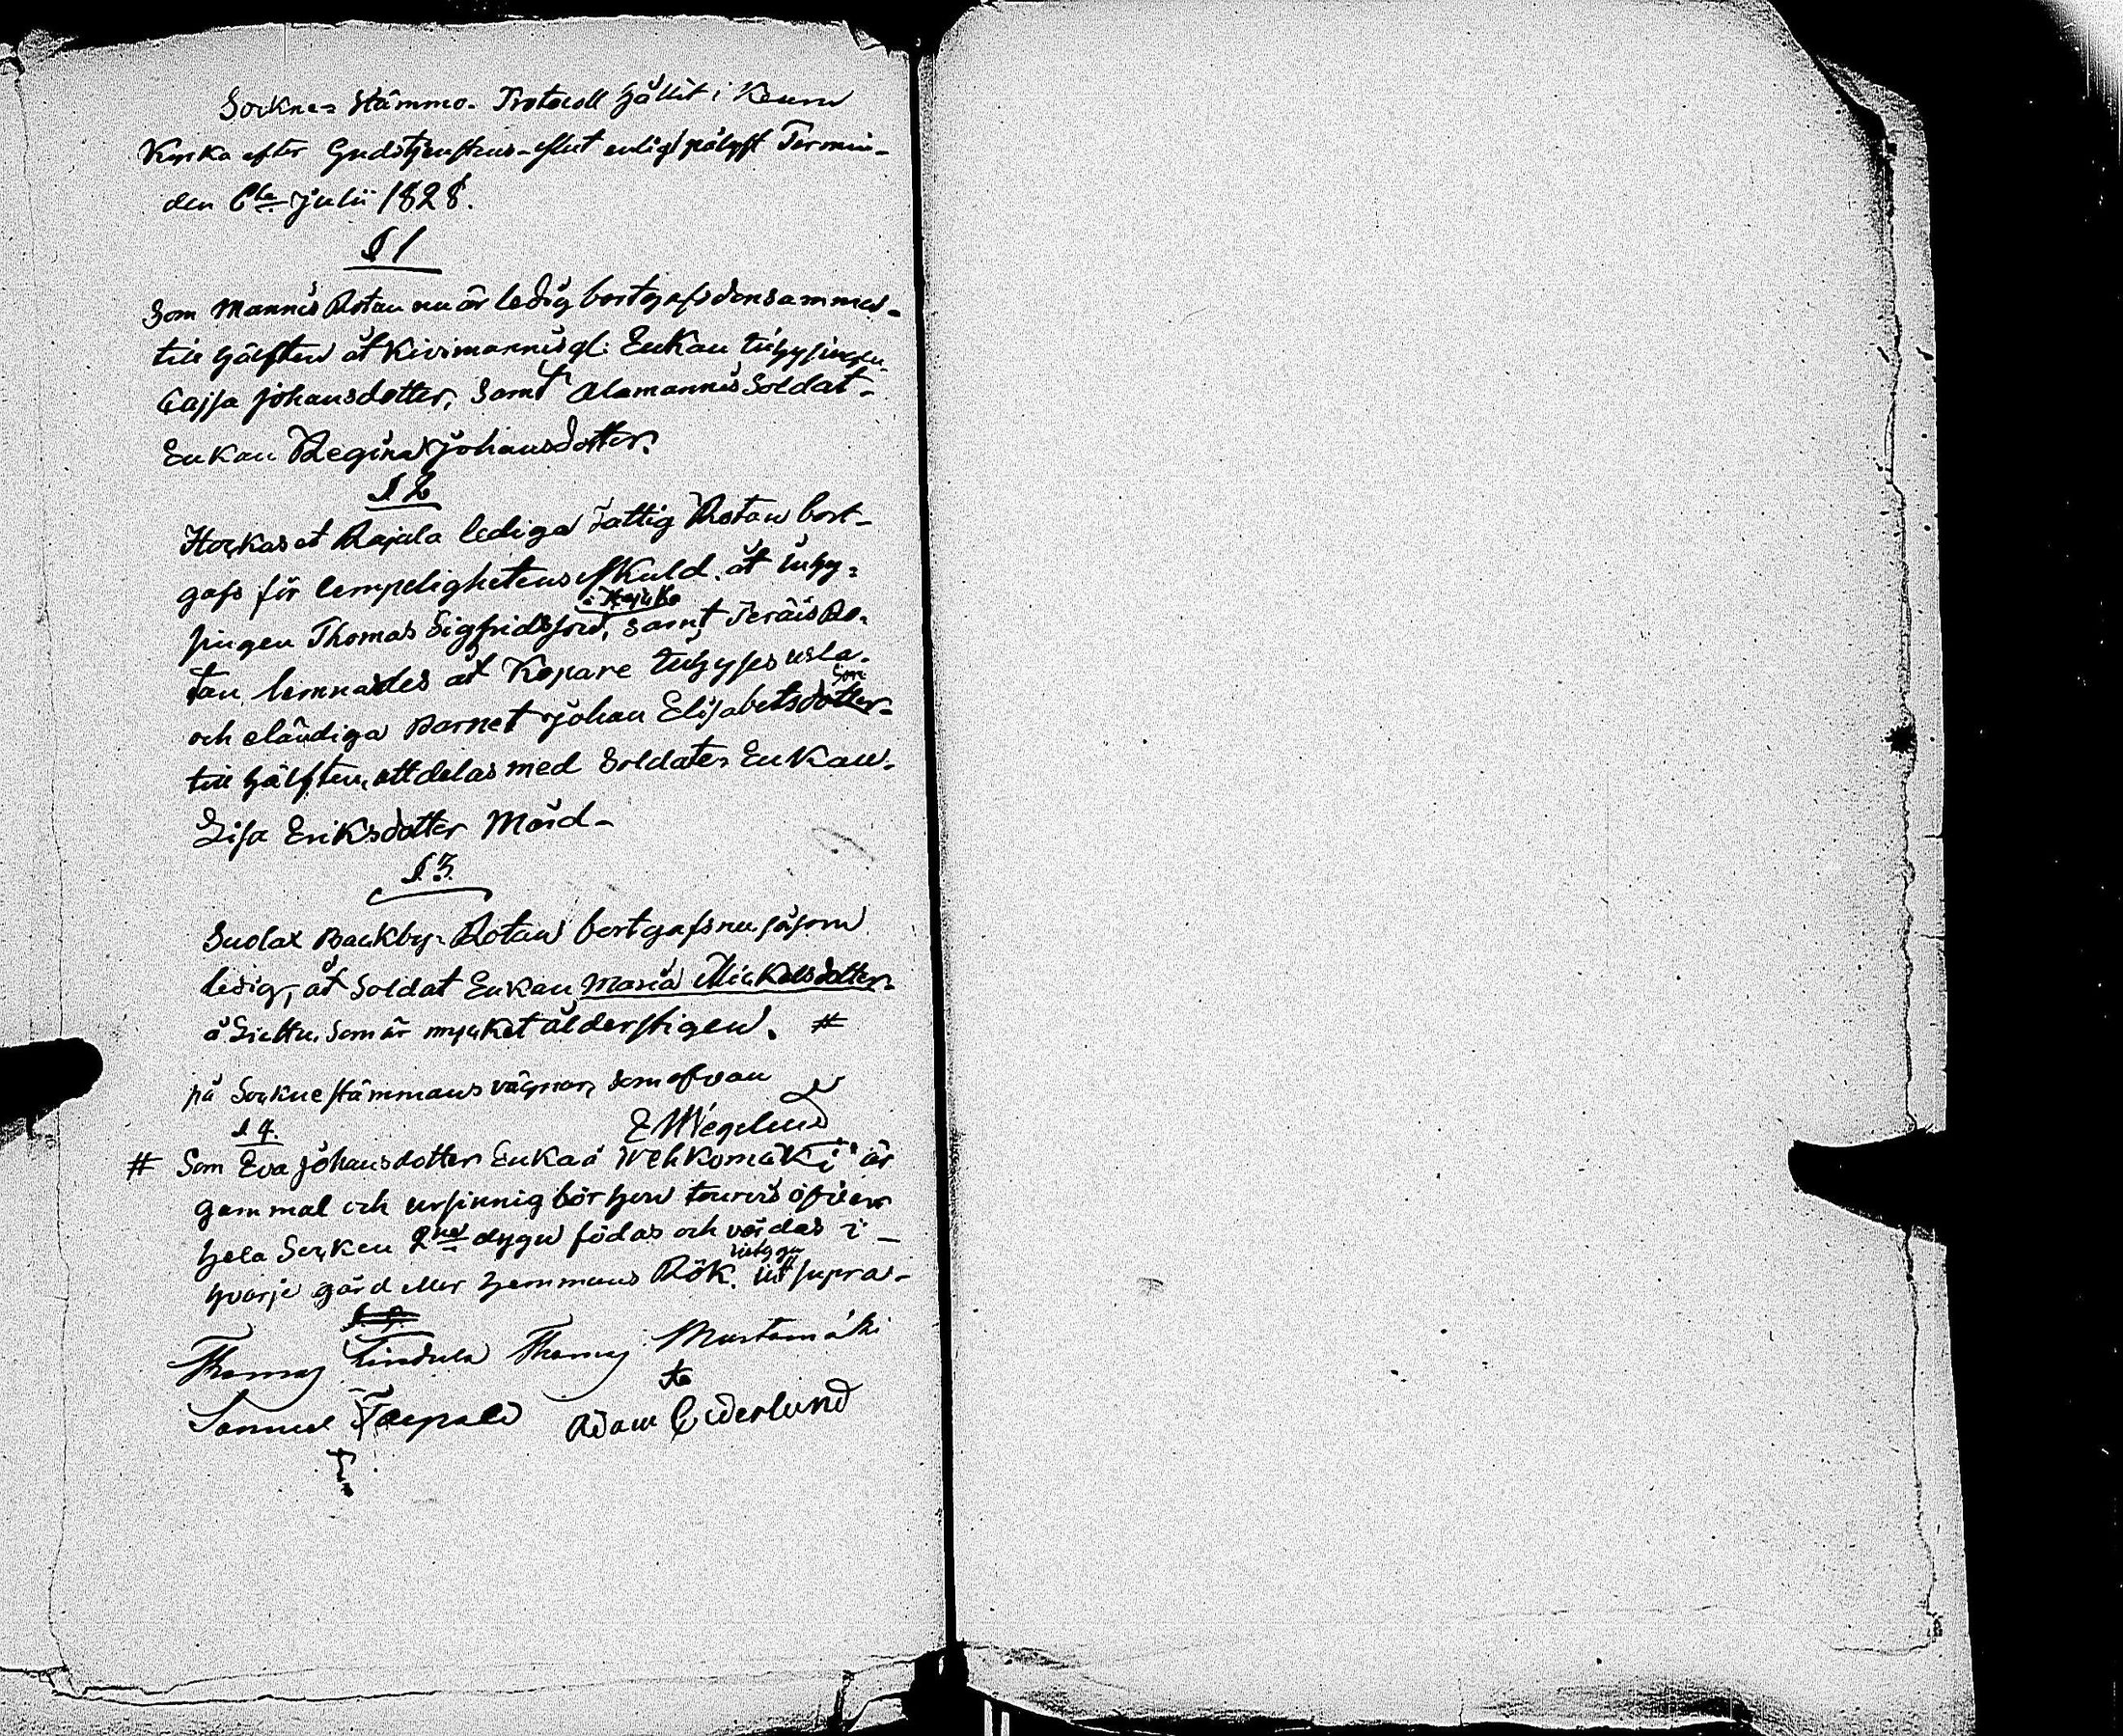 Sockne Stämmo Protocoll hållit i Keuru
Kyrka efter Gudstjenstens slut enligt pålyst Termin
den 6te Julii 1828.
§ 1
Som Mannis Rotan nu är ledig bortgafs densamma
till hälften åt Kivimannis gl: Enkan inhysingen
Cajsa Johansdotter, samt Alamannis Soldat
Enkan Regina Johansdotter.
§ 2
Hockas et Rajala lediga Fattig Rotan bort-
gafs för lempelighetens skuld åt inhy-
singen Thomas Sigfridsson, samt Teräis Ro-
tan lemnades åt Kopare inhyses usla
och eländiga Barnet Johan Elisabets dotter
Son
till hälften, att delas med Soldats Enkan
Lisa Eriksdotter Mård
§ 3
Suolax Backby Rotan bortgafs nu såsom
ledig, åt Soldat Enkan Maria Mickelsdotter
å Siettu, som är mycket ålderstigen. #
på Sockne stämmans vägnar, som ofvan
E Wegelius
§ 4.
# Som Eva Johansdotter Enka å Wehkomäki är
gammal och ursinnig bör hon tourvis öfver
hela Socken 2ne dygn födas och vårdas i
hvarje gård eller hemmans Rök. ut supra
Thomas Thomas Mustamäki
Samuel Adam Cederlund